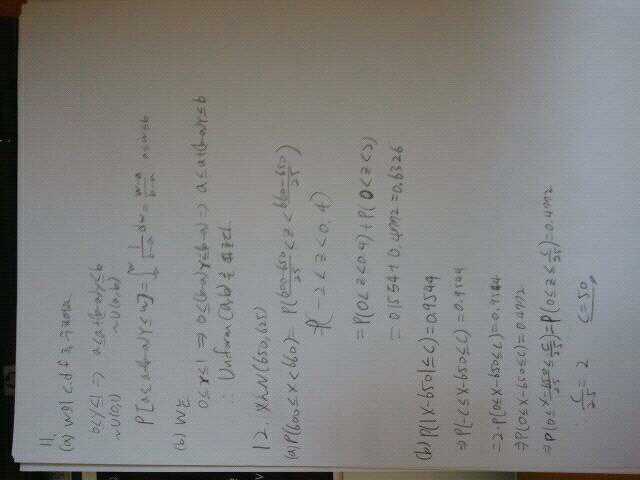 11.
(a) W의 c.d.f
0<y≤1 ⇒ a≤a+(b-a)y≤b
~U(0,1) ~U(a,b)
P[a≤a+(b-a)y≤w]=∫ₐʷ 1/(b-a) dw = (w-a)/(b-a) a≤w≤b
(b) W는
0≤y≤1 ⇒ 0≤(b-a)y≤b-a ⇒ a≤a+(b-a)y≤b
∴ Uniform(a,b)를
12. X~N(650,625)
(a) P(600≤X<660)= P((600-650)/25<z<(660-650)/25)
= P(-2<z<0.4)
= P(0<z<0.4)+P(0<z<2)
= 0.1554+0.4772=0.6326
(b) P(|X-650|≤c)=0.9544
⇒P(-c≤X-650≤c)=0.9544
=2·P(0≤X-650≤c)=0.9544
⇒P(0≤X-650≤c)=0.4772
⇒P(0≤(X-650)/25≤c/25)=P(0≤z≤c/25)=0.4772
c/25=2 c=50